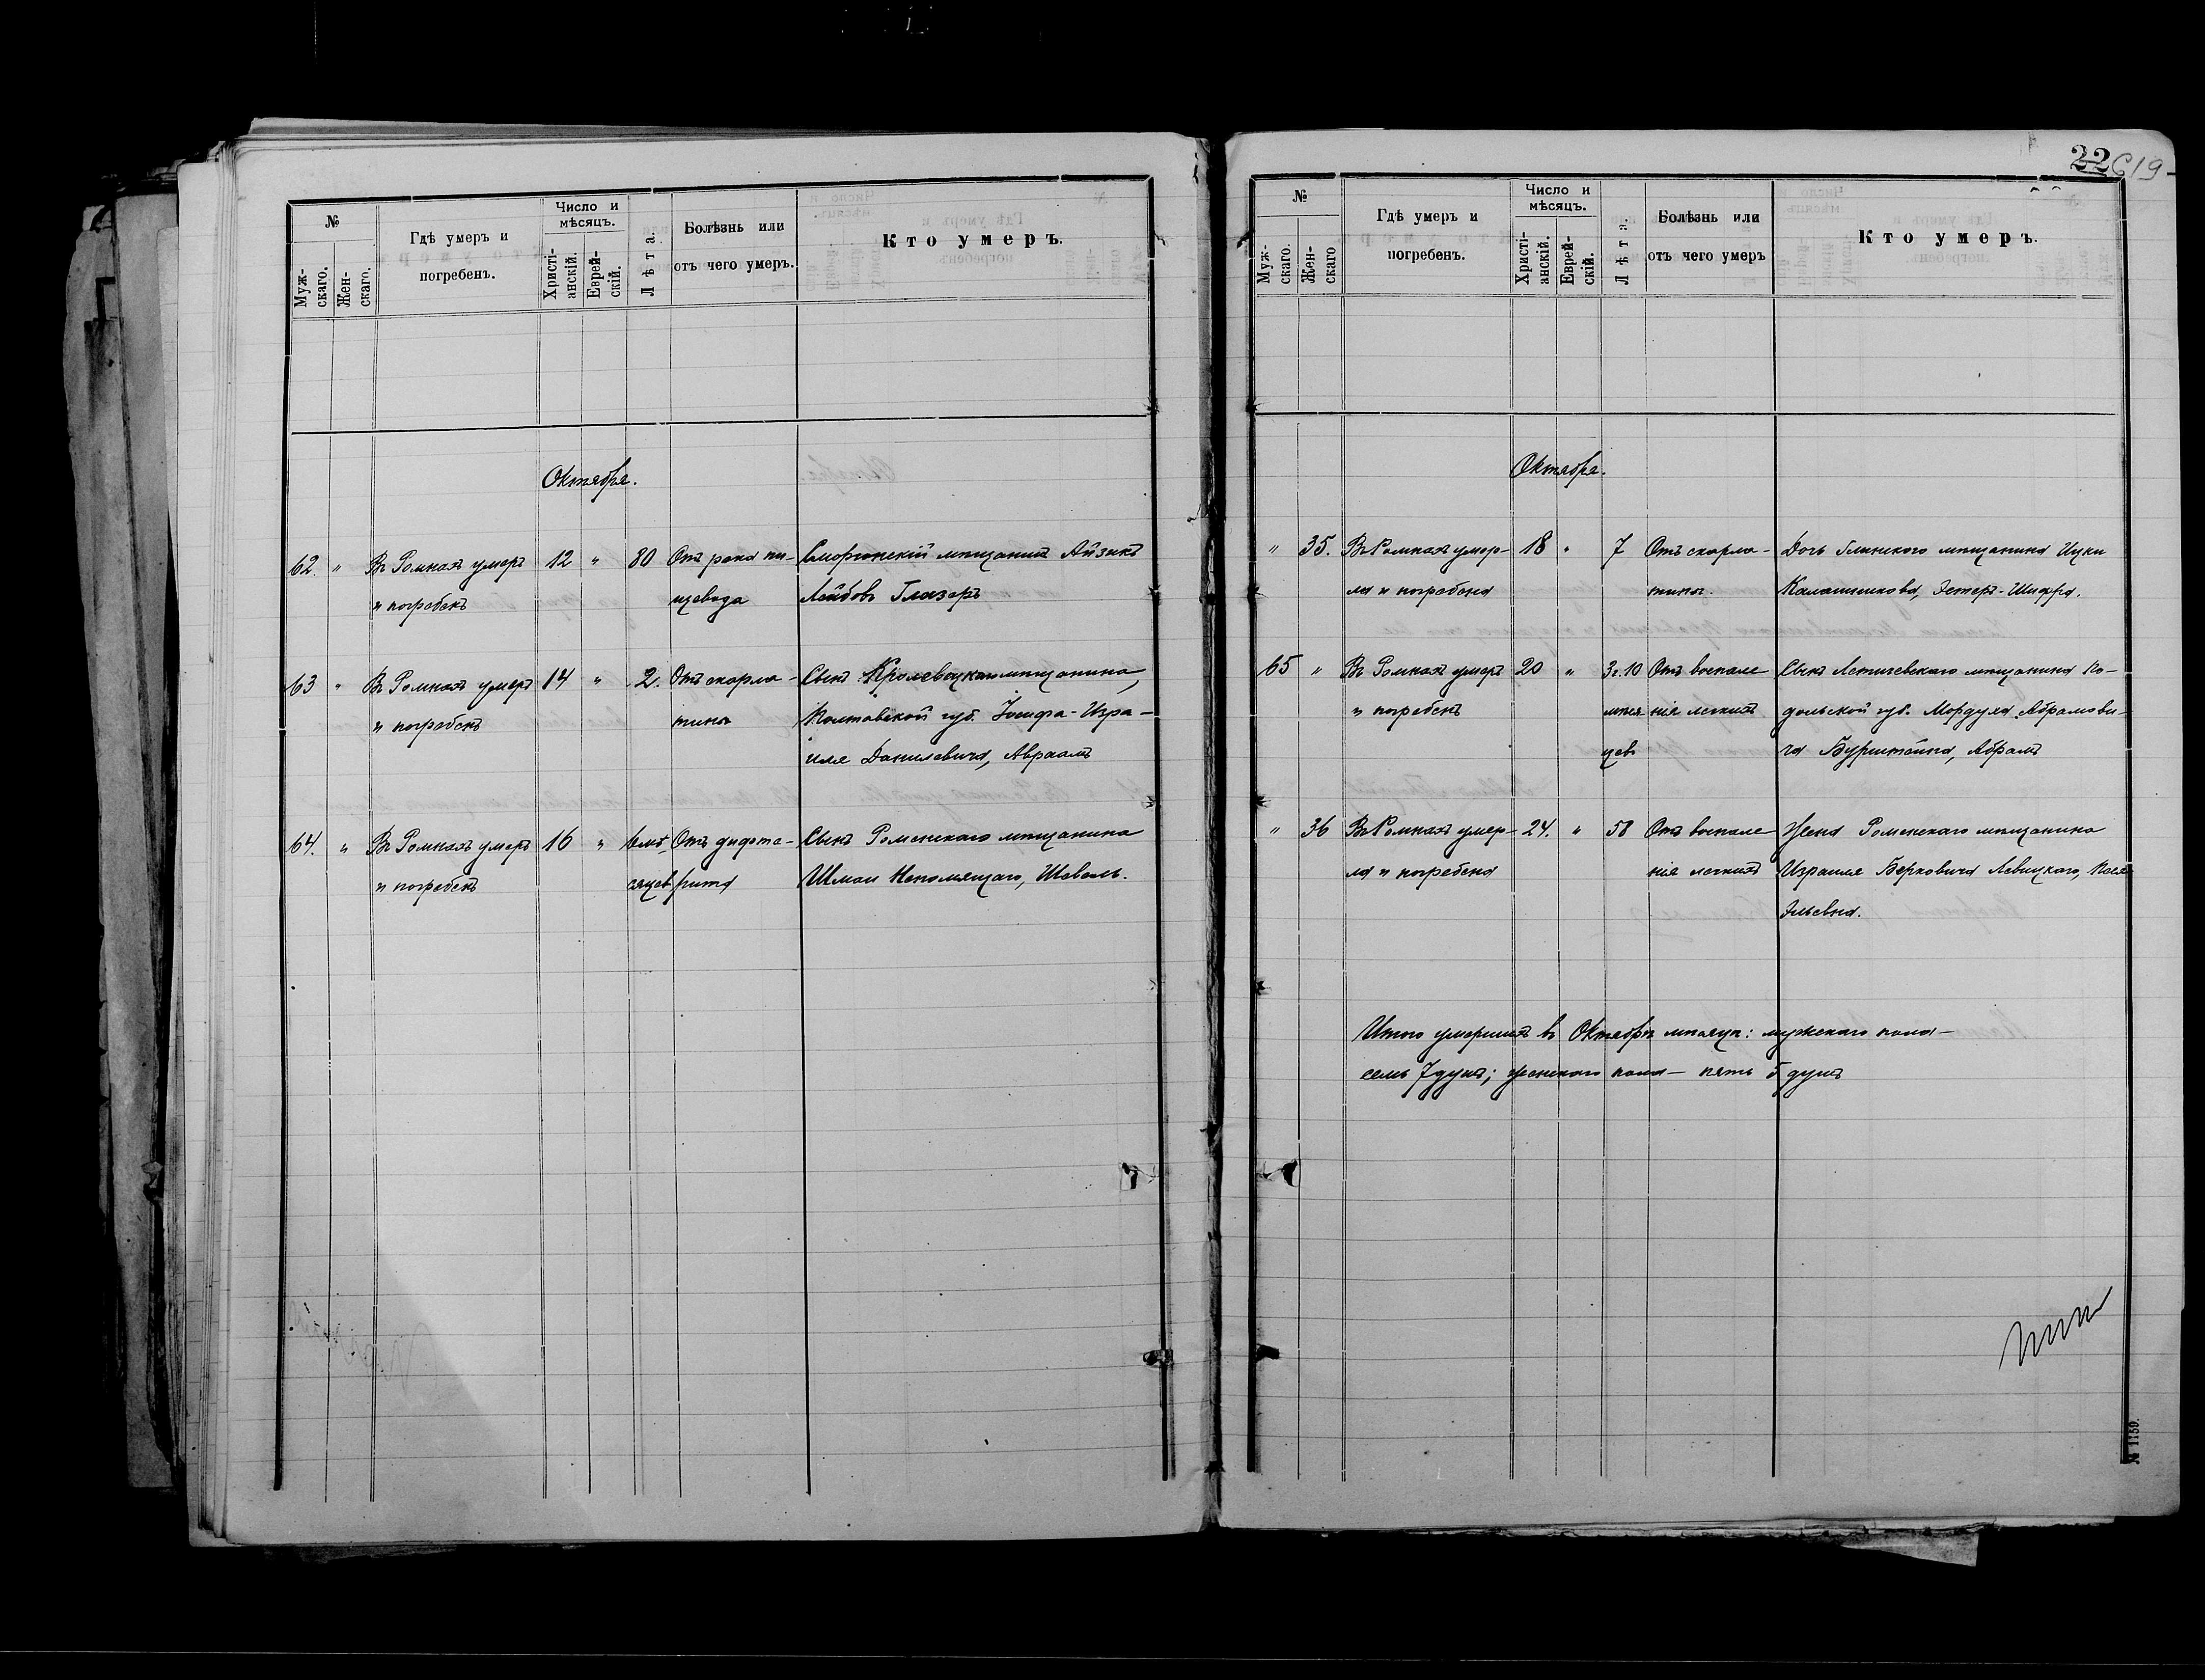 №
Муж-
скаго.
Жен-
скаго.
Гдѣ умеръ и
погребенъ.
Число и
мѣсяцъ.
Христі-
анскій.
Еврей-
скій.
Лѣта.
Болѣзнь или
отъ чего умеръ.
Кто умеръ.
Октября.
62. " Въ Ромнахъ умеръ 12 " 80 Отъ рака пи-
и погребенъ
щевода
мѣщанинъ Айзикъ
Лейбовъ Глазеръ
63 " Въ Ромнахъ умеръ 14 " 2. Отъ скарла-
и погребенъ
тины
Сынъ Кролевецкаго мѣщанина,
Полтавской губ. Іосифа-Изра-
иля Данилевича, Авраамъ
64. " Въ Ромнахъ умеръ 16 "
и погребенъ
сяцевъ
Отъ
Сынъ Роменскаго мѣщанина
Шмаи Непомящаго, Шевель.
22
619
№
Муж-
скаго.
Жен-
скаго
Гдѣ умеръ и
погребенъ.
Число и
мѣсяцъ.
Христі-
анскій.
Еврей-
скій.
Лѣта.
Болѣзнь или
отъ чего умеръ
Кто умеръ.
Октября.
" 35. Въ Ромнахъ умер- 18 " 7 Отъ скарла-
ла и погребена
тины.
Дочь Глинскаго мѣщанина Ицки
Калашникова, Эстеръ-Шифра.
65 " Въ Ромнахъ умеръ 20 " 3 г. 10 Отъ воспале
и погребенъ
мѣся
нія легкихъ
цевъ
Сынъ Летичевскаго мѣщанина По-
дольской губ. Мордуха Абрамови-
ча Бурштейна, Абрамъ
" 36 Въ Ромнахъ умер- 24. " 58 Отъ воспале
ла и погребена
нія легкихъ
Жена Роменскаго мѣщанина
Израиля Берковича Левицкаго, Песя
Эльевна.
Итого умершихъ въ Октябрѣ мѣсяцѣ: мужскаго пола—
семь 7 душъ; женскаго пола— пять 5 душъ
№ 1159.